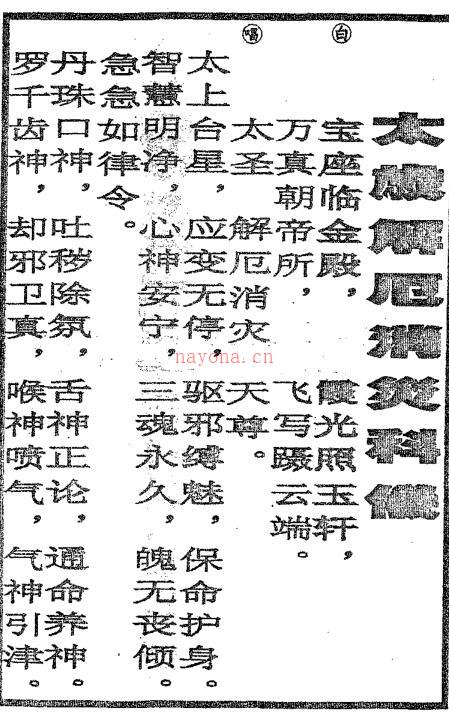 太歲解厄消災科儀
白
宝座临金殿，霞光照玉轩，
万真朝帝所，飞写蹑云端。
唱
太圣解厄消灾天尊。
太上台星，应变无停，驱邪缚魅，保命护身。
智慧明净，心神安宁，三魂永久，魄无丧倾。
急急如律令。
丹珠口神，吐秽除氛，舌神正论，通命养神。
罗千齿神，却邪卫真，喉神喷气，气神引津。
nayona.cn